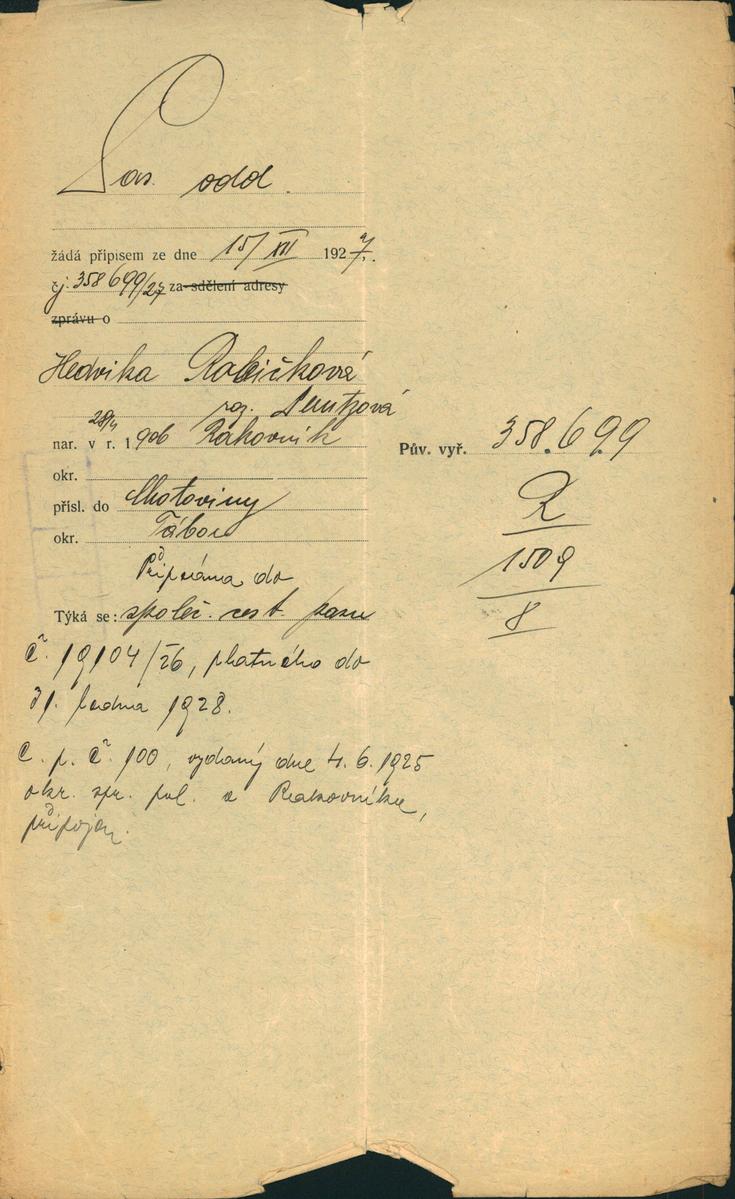 Pas. odd.
žádá přípisem ze dne 15/XII 1927.
čj. 358699/27 za sdělení adresy
zprávu o
Hedvika Robičková
roz.
nar. v r. 1906 Rakovník
28/4
okr.
přísl. do Chotoviny
okr. Tábor
Připsána do
Týká se: společ. cest. pasu
č. 19104/26, platného do
31. ledna 1928.
C. p. č. 100, vydaný dne 4.6.1925
okr. spr. pol. v Rakovníku,
připojen.
Pův. vyř. 358.699
R
1509
8